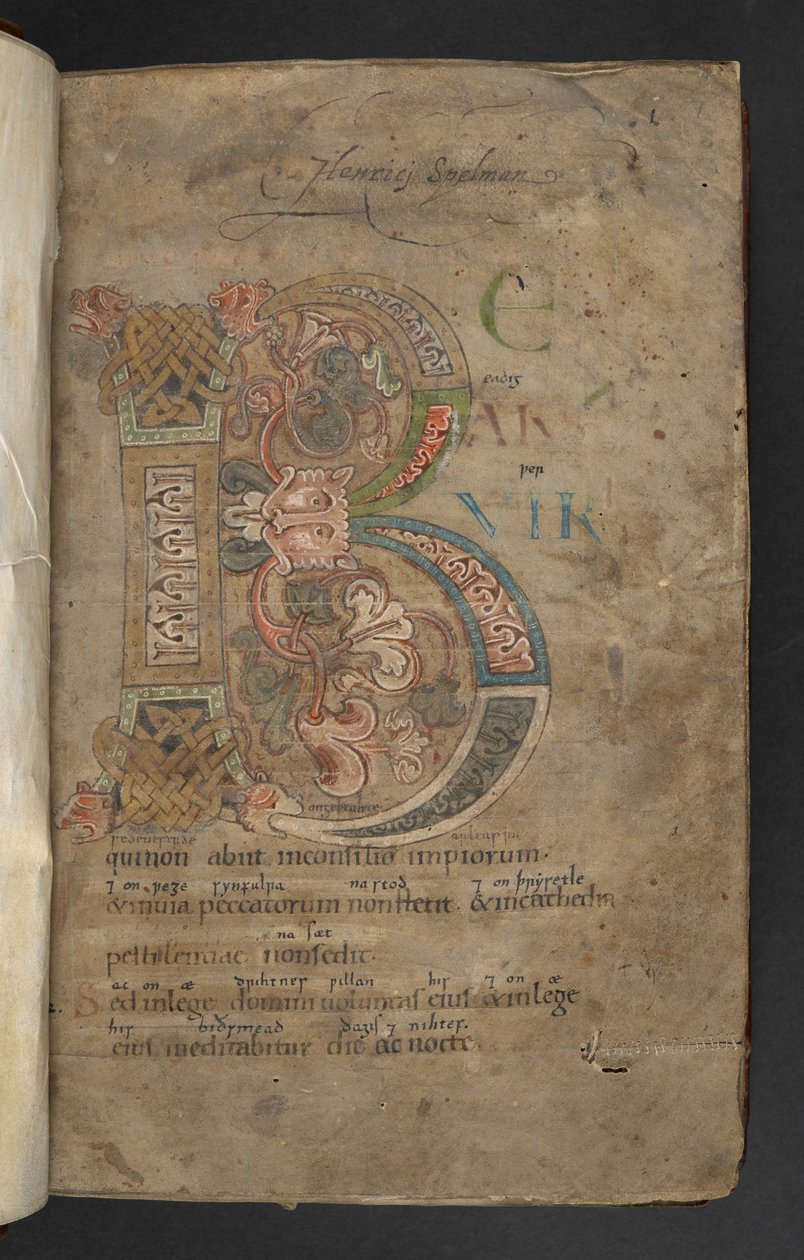 Henrici Spelman
BE
eadig
AT
wer
VIR
qui non abiit inconsilio impiorum.
⁊ on wege synfulra na stod ⁊ on þrymsetle
&inuia peccatorum nonstetit. &incathedra
na sæt
pestilentiae nonsedit.
ac on æ drihtnes willan his ⁊ on æ
Sed inlege domini uoluntas eius &inlege
his dagis ⁊ nihtes.
eius meditabitur die ac nocte.